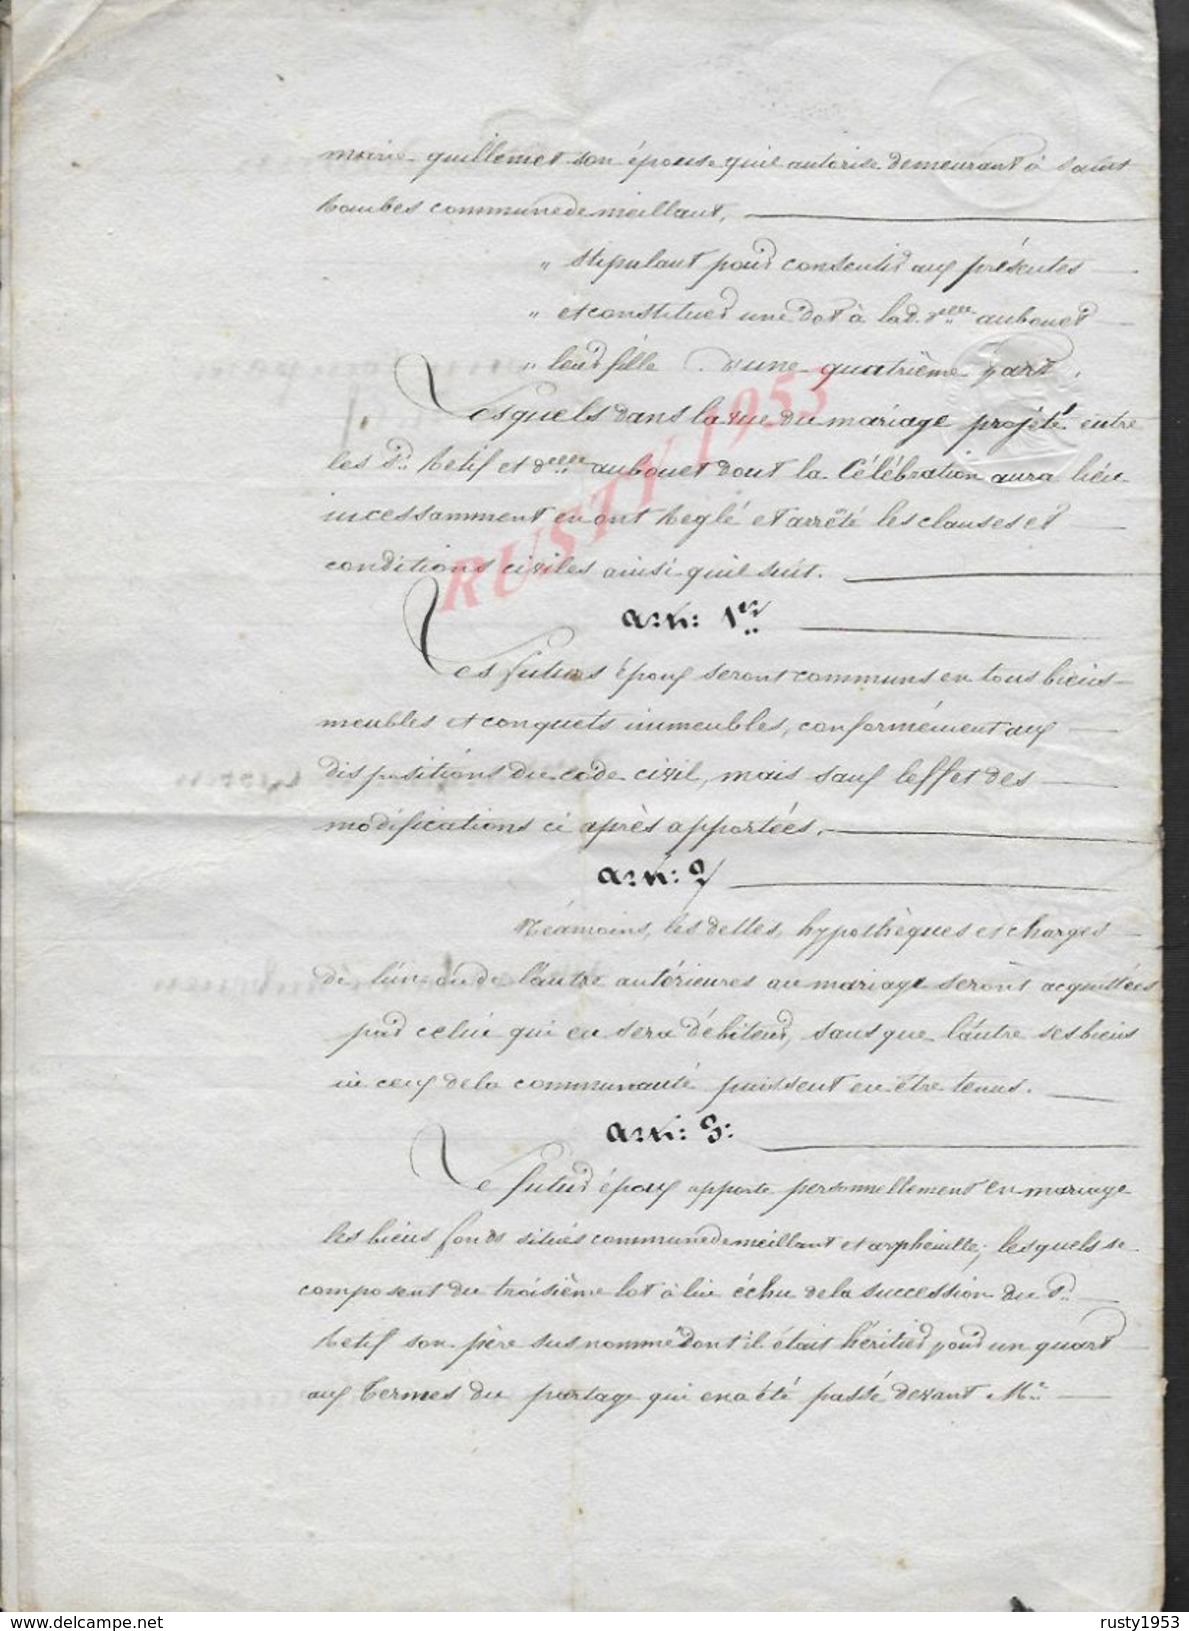 marie guillemet son épouse qu'il autorise demeurant à Saint
commune de meillant,
" stipulant pour consentir aux présentes
" et constituer une dot à lad. delle aubouet
" leur fille d'une quatrième part.
Lesquels dans la vue du mariage projeté entre
les Sr. Retif et delle aubouet dont la Célébration aura lieu
incessamment en ont Reglé et arrêté les clauses et
conditions civiles ainsi qu'il suit.
art: 1er
Les futurs époux seront communs en tous biens
meubles et conquets immeubles, conformément aux
dispositions du code civil, mais sauf l'effet des
modifications ci après apportées.
art: 2
Néamoins, les dettes, hypothèques et charges
de l'un ou de l'autre antérieures au mariage seront acquittées
par celui qui en sera débiteur, sans que l'autre ses biens
ni ceux de la communauté puissent en être tenus.
art: 3:
Le futur époux apporte personnellement en mariage
les biens fonds situés commune de meillant et arpheuille, lesquels se
composent du troisième lot à lui échu de la succession du Sr.
Retif son père susnommé dont il était héritier pour un quart
aux Termes du partage qui en a été passé devant Me.
RUSTY 1953
http://www.delcampe.net
rusty1953